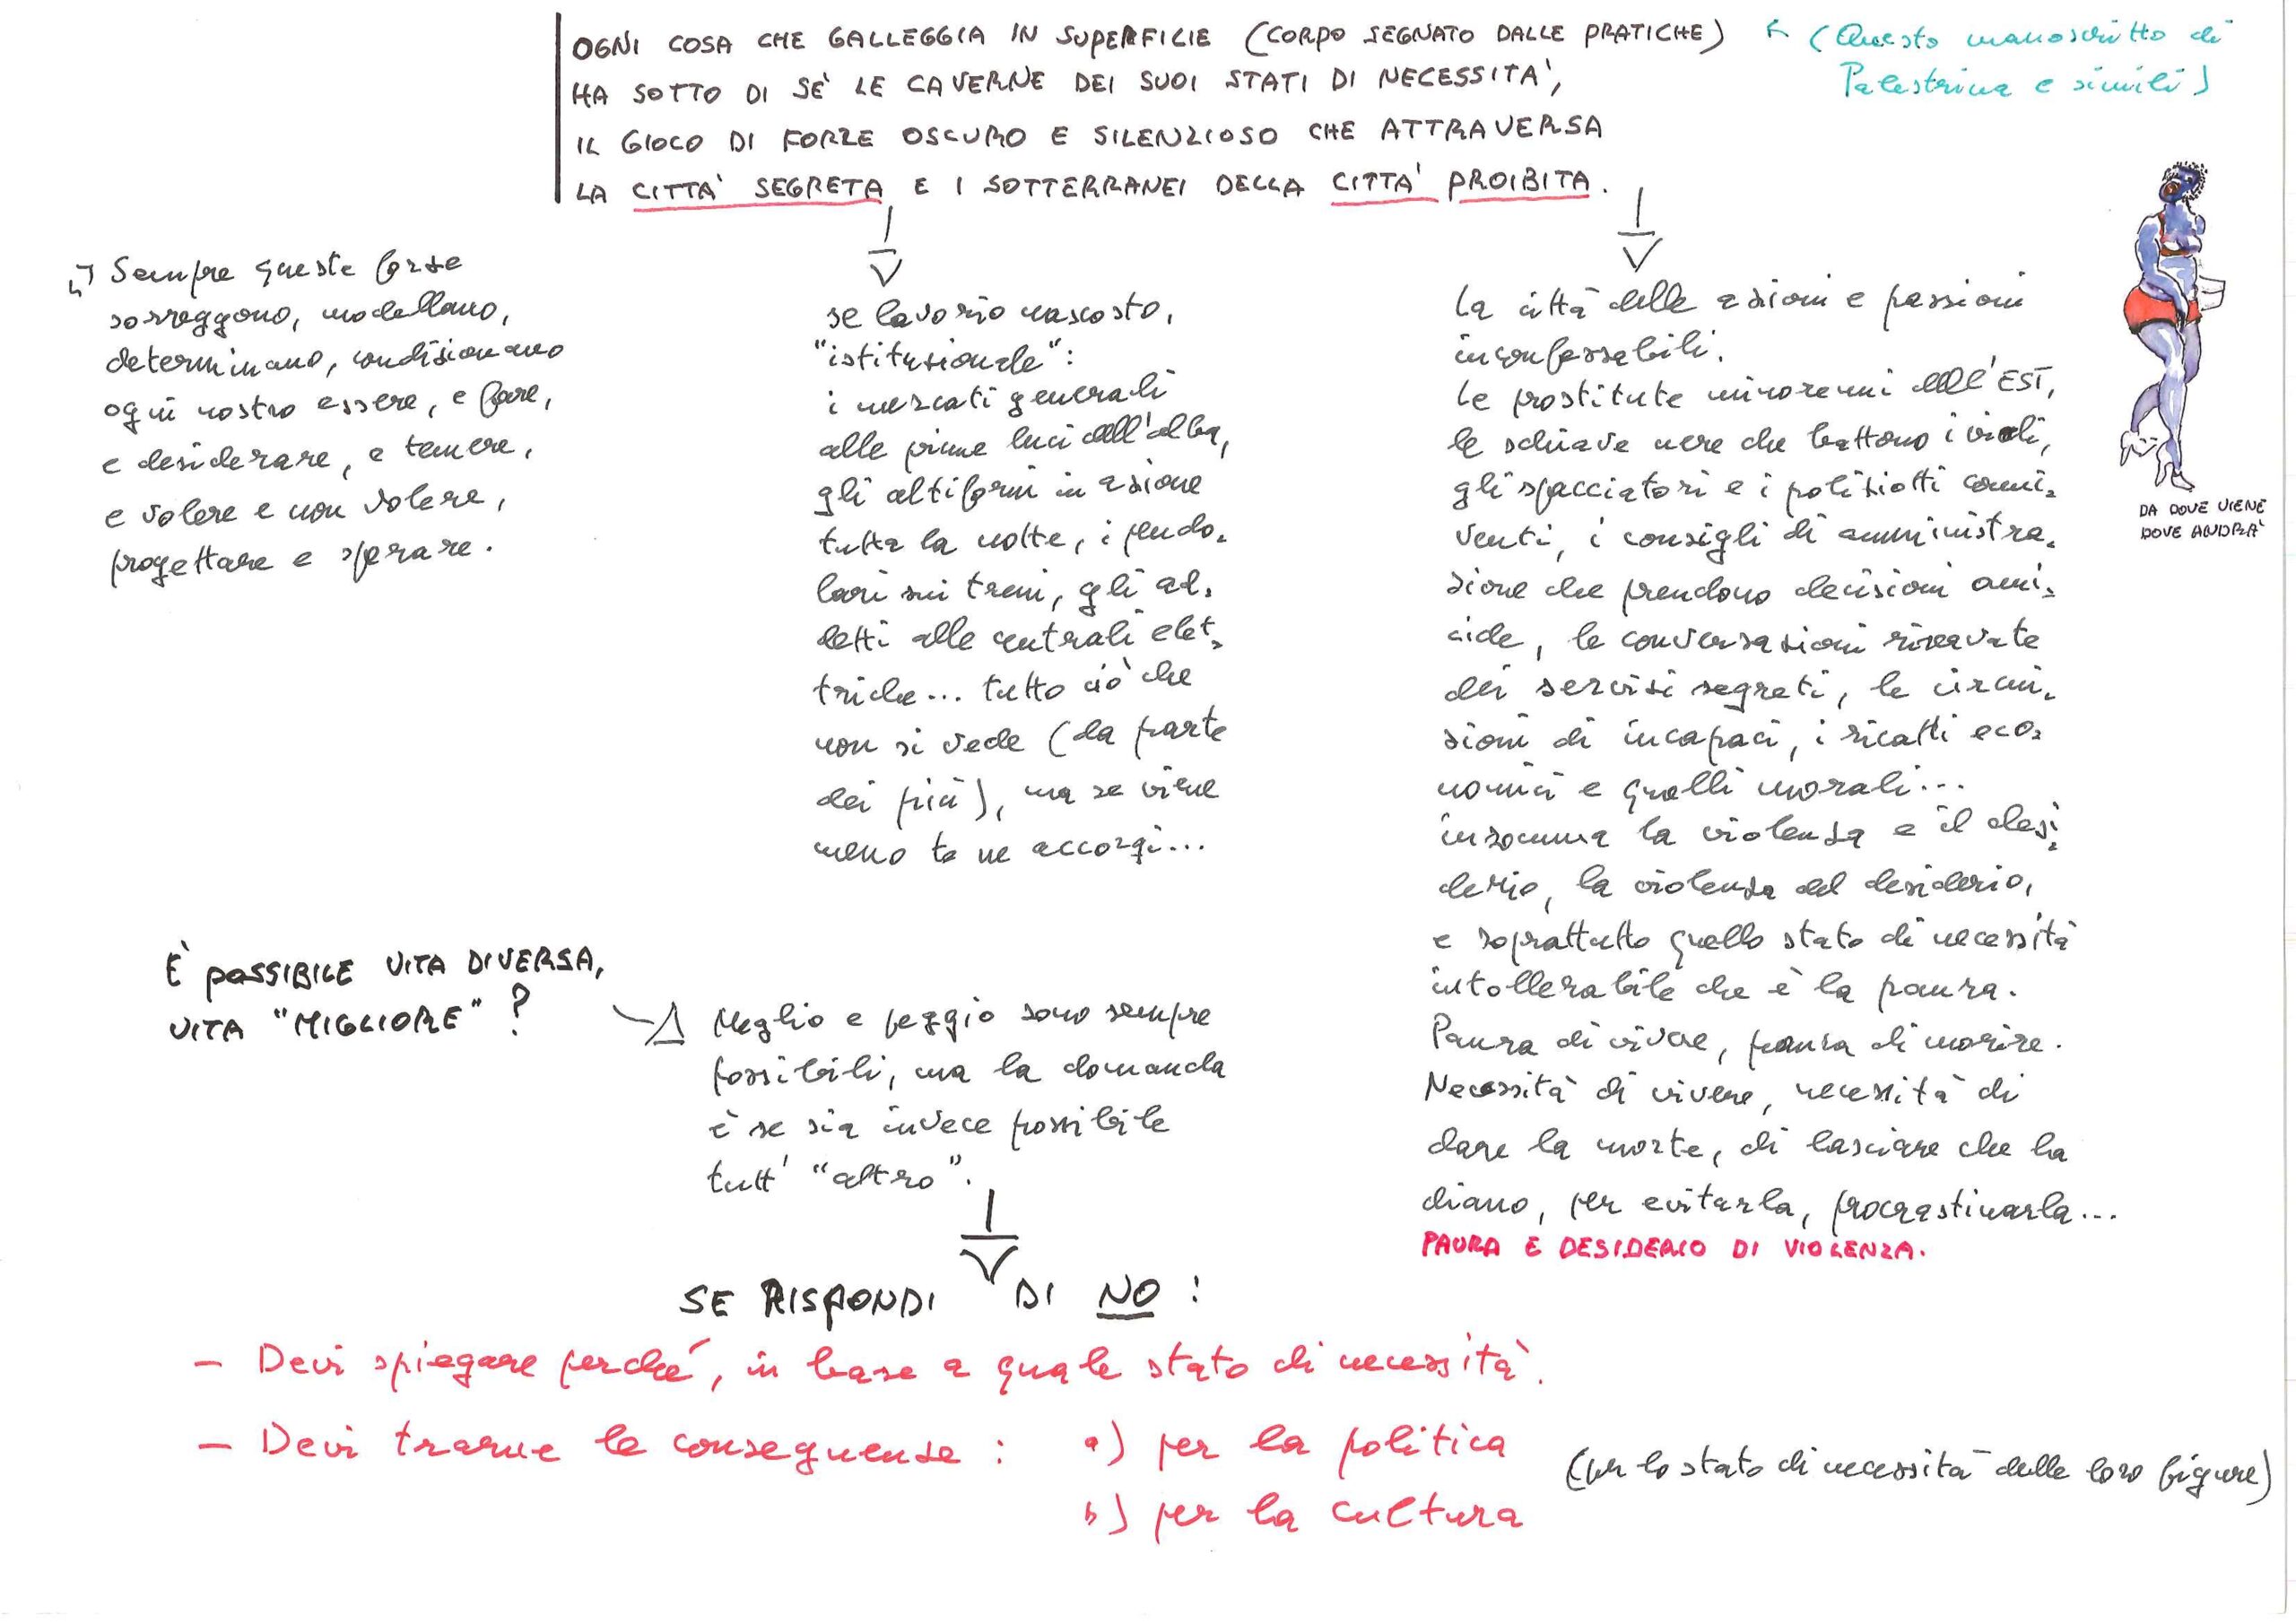 OGNI COSA CHE GALLEGGIA IN SUPERFICIE (CORPO SEGNATO DALLE PRATICHE)
HA SOTTO DI SÈ LE CAVERNE DEI SUOI STATI DI NECESSITA',
IL GIOCO DI FORZE OSCURO E SILENZIOSO CHE ATTRAVERSA
LA CITTA' SEGRETA E I SOTTERRANEI DELLA CITTA' PROIBITA.
(Questo manoscritto di
Palestrina e simili)
Sempre queste forze
sorreggono, modellano,
determinano, condizionano
ogni nostro essere, e fare,
e desiderare, e temere,
e volere e non volere,
progettare e sperare.
se lavorio nascosto,
"istituzionale":
i mercati generali
alle prime luci dell'alba,
gli altiforni in azione
tutta la notte, i pendo=
lari sui treni, gli ad=
detti alle centrali elet=
triche... tutto ciò che
non si vede (da parte
dei più), ma se viene
meno te ne accorgi...
La città delle azioni e passioni
inconfessabili.
Le prostitute minorenni dell'EST,
le schiave nere che battono i viali,
gli spacciatori e i poliziotti conni=
venti, i consigli di amministra=
zione che prendono decisioni omi=
cide, le conversazioni riservate
dei servizi segreti, le circui=
zioni di incapaci, i ricatti eco=
nomici e quelli morali...
insomma la violenza e il desi=
derio, la violenza del desiderio,
e soprattutto quello stato di necessità
intollerabile che è la paura.
Paura di vivere, paura di morire.
Necessità di vivere, necessità di
dare la morte, di lasciare che la
diano, per evitarla, procrastinarla...
PAURA E DESIDERIO DI VIOLENZA.
DA DOVE VIENE
DOVE ANDRA'
È POSSIBILE VITA DIVERSA,
VITA "MIGLIORE"?
Meglio e peggio sono sempre
possibili, ma la domanda
è se sia invece possibile
tutt' "altro".
SE RISPONDI DI NO:
- Devi spiegare perché, in base a quale stato di necessità.
- Devi trarne le conseguenze: a) per la politica
b) per la cultura
(per lo stato di necessità delle loro figure)